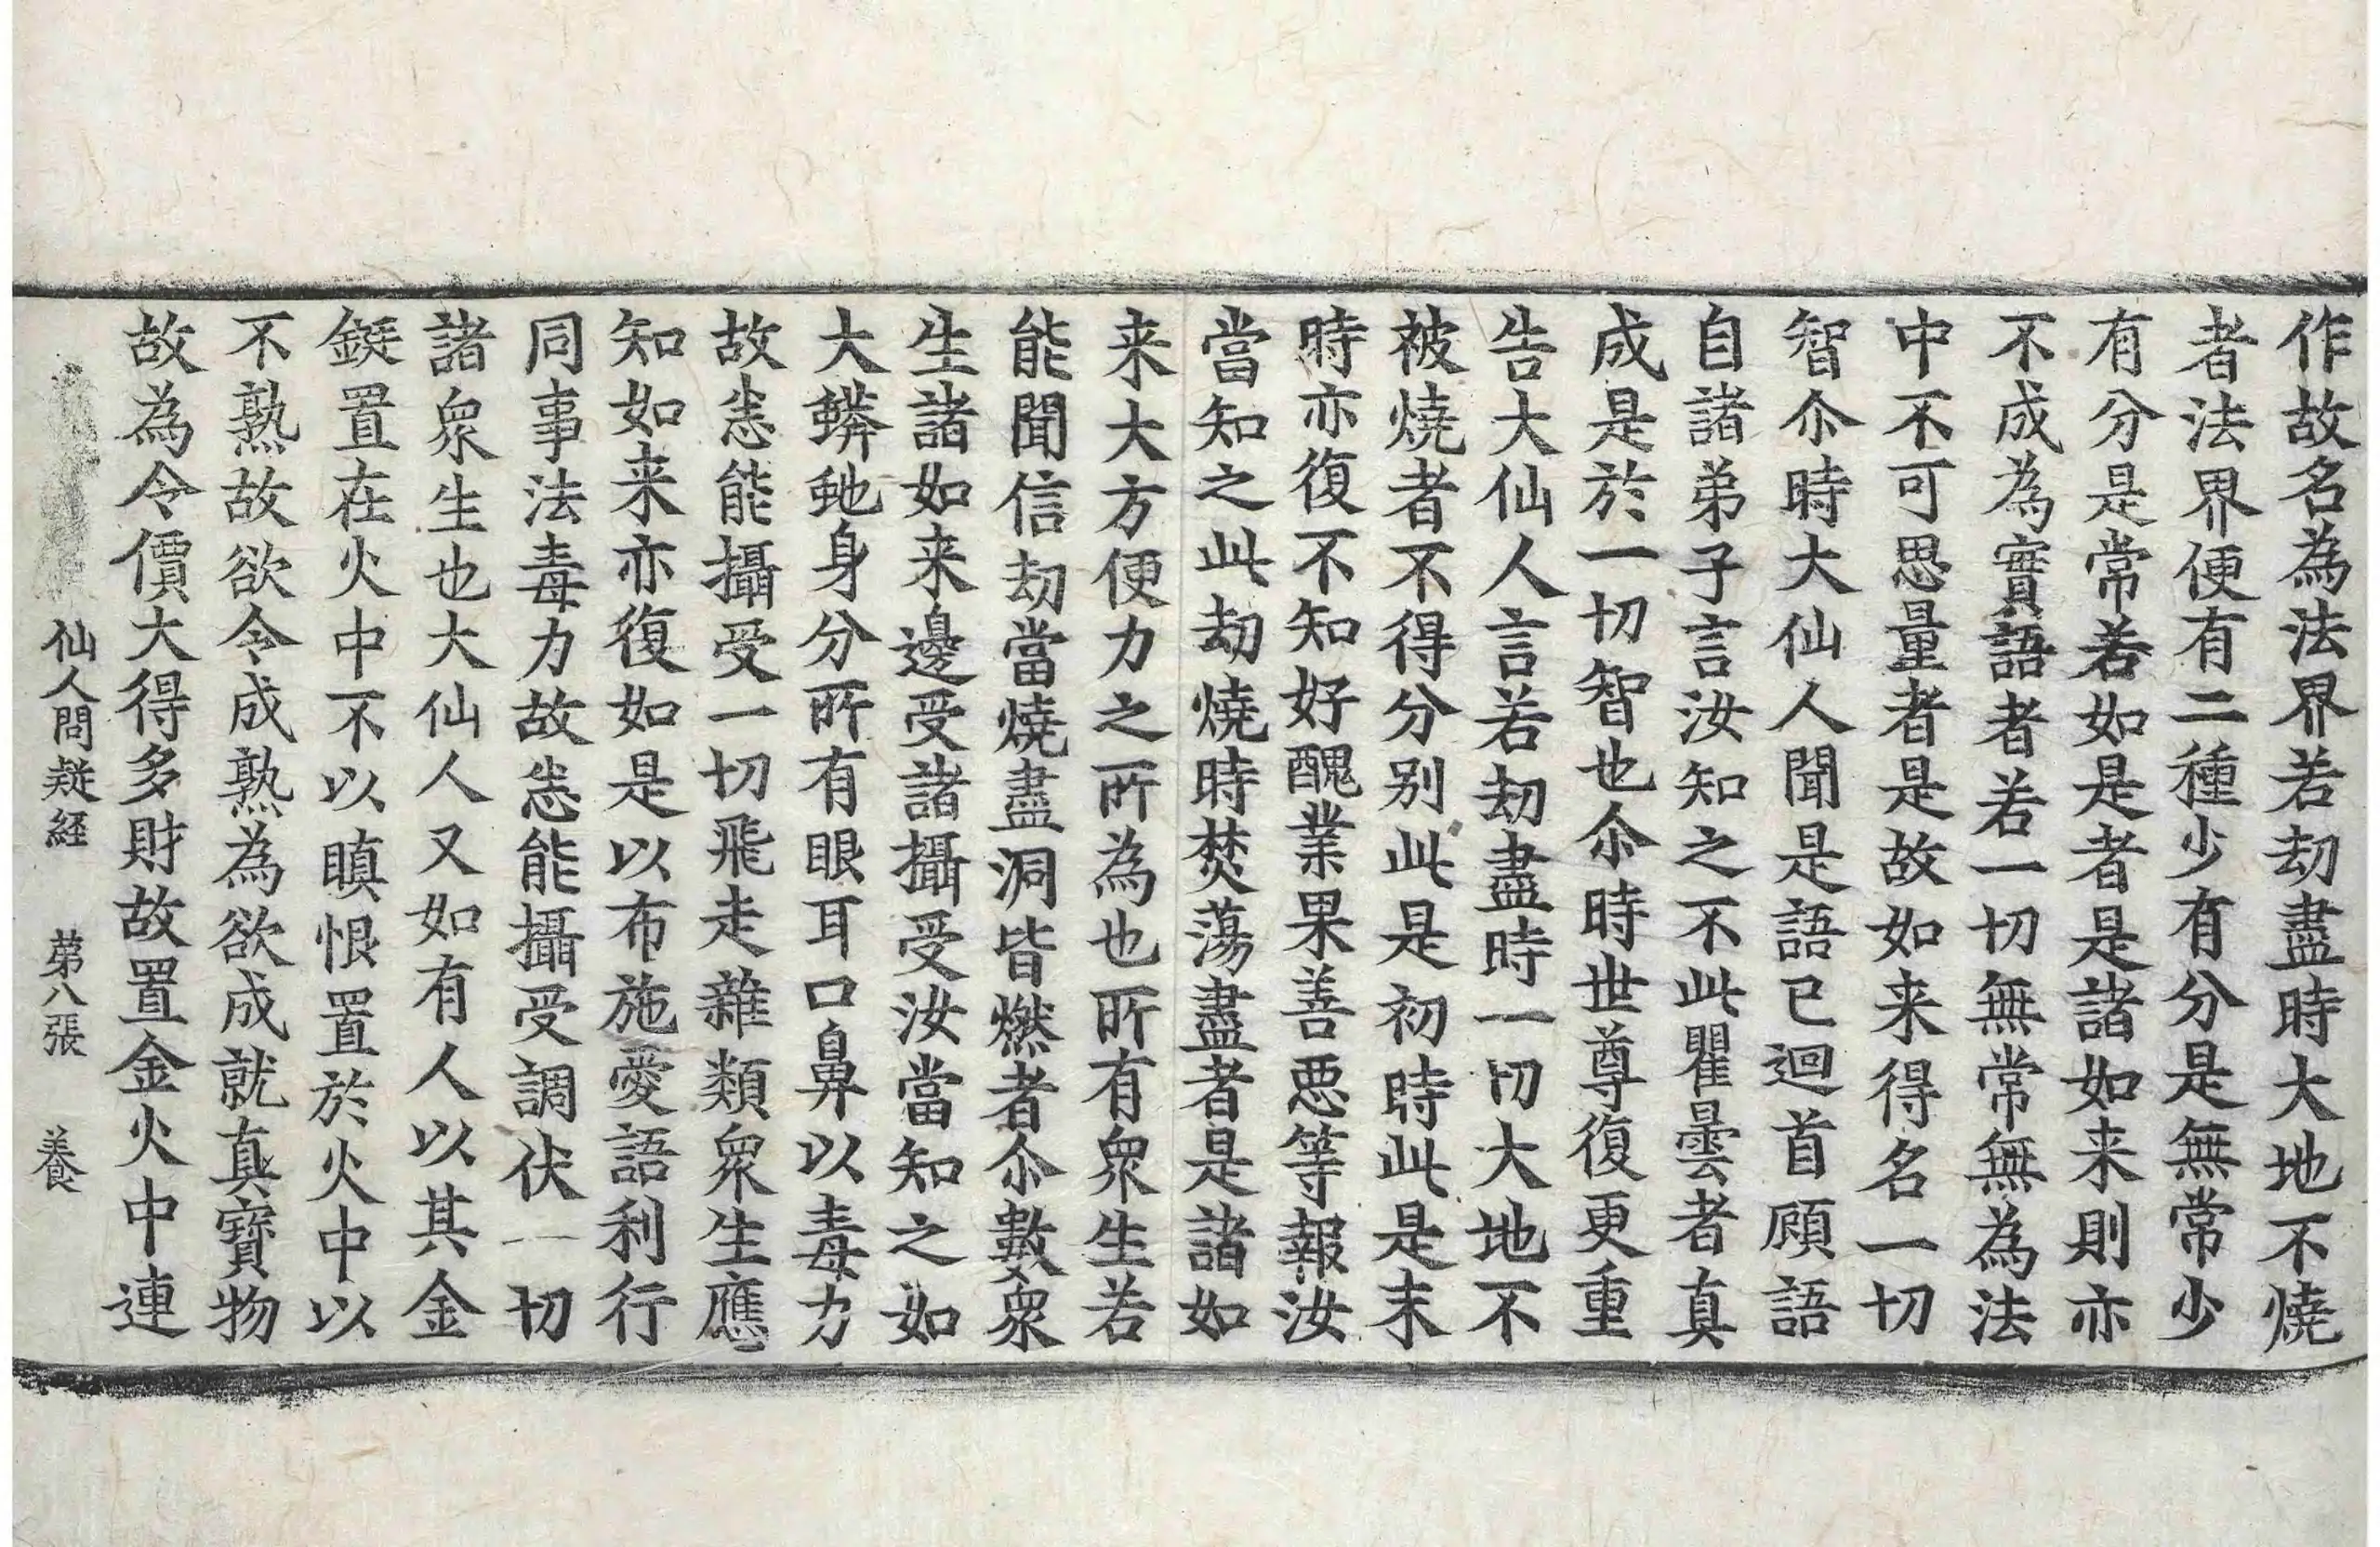 作故名為法界若劫盡時大地不燒
者法界便有二種少有分是無常少
有分是常若如是者是諸如来則亦
不成為實語者若一切無常無為法
中不可思量者是故如来得名一切
智尒時大仙人聞是語已迴首顧語
自諸弟子言汝知之不此瞿曇者真
成是於一切智也尒時世尊復更重
告大仙人言若劫盡時一切大地不
被燒者不得分别此是初時此是末
時亦復不知好醜業果善惡等報汝
當知之此劫燒時焚蕩盡者是諸如
来大方便力之所為也所有衆生若
能聞信劫當燒盡洞皆燃者尒數衆
生諸如来邊受諸攝受汝當知之如
大蟒虵身分所有眼耳口鼻以毒力
故悉能攝受一切飛走雜類衆生應
知如来亦復如是以布施愛語利行
同事法毒力故悉能攝受調伏一切
諸衆生也大仙人又如有人以其金
鋌置在火中不以瞋恨置於火中以
不熟故欲令成熟為欲成就真寶物
故為令價大得多財故置金火中連
仙人問疑経 第八張 養